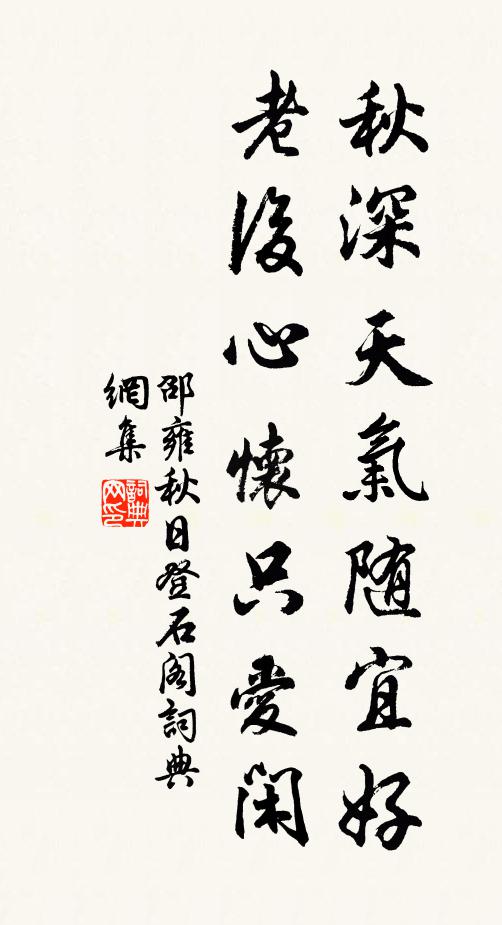 秋深天氣随宜好
老後心懷只愛閑
邵雍秋日登石阁詞典
網集
詞典网印